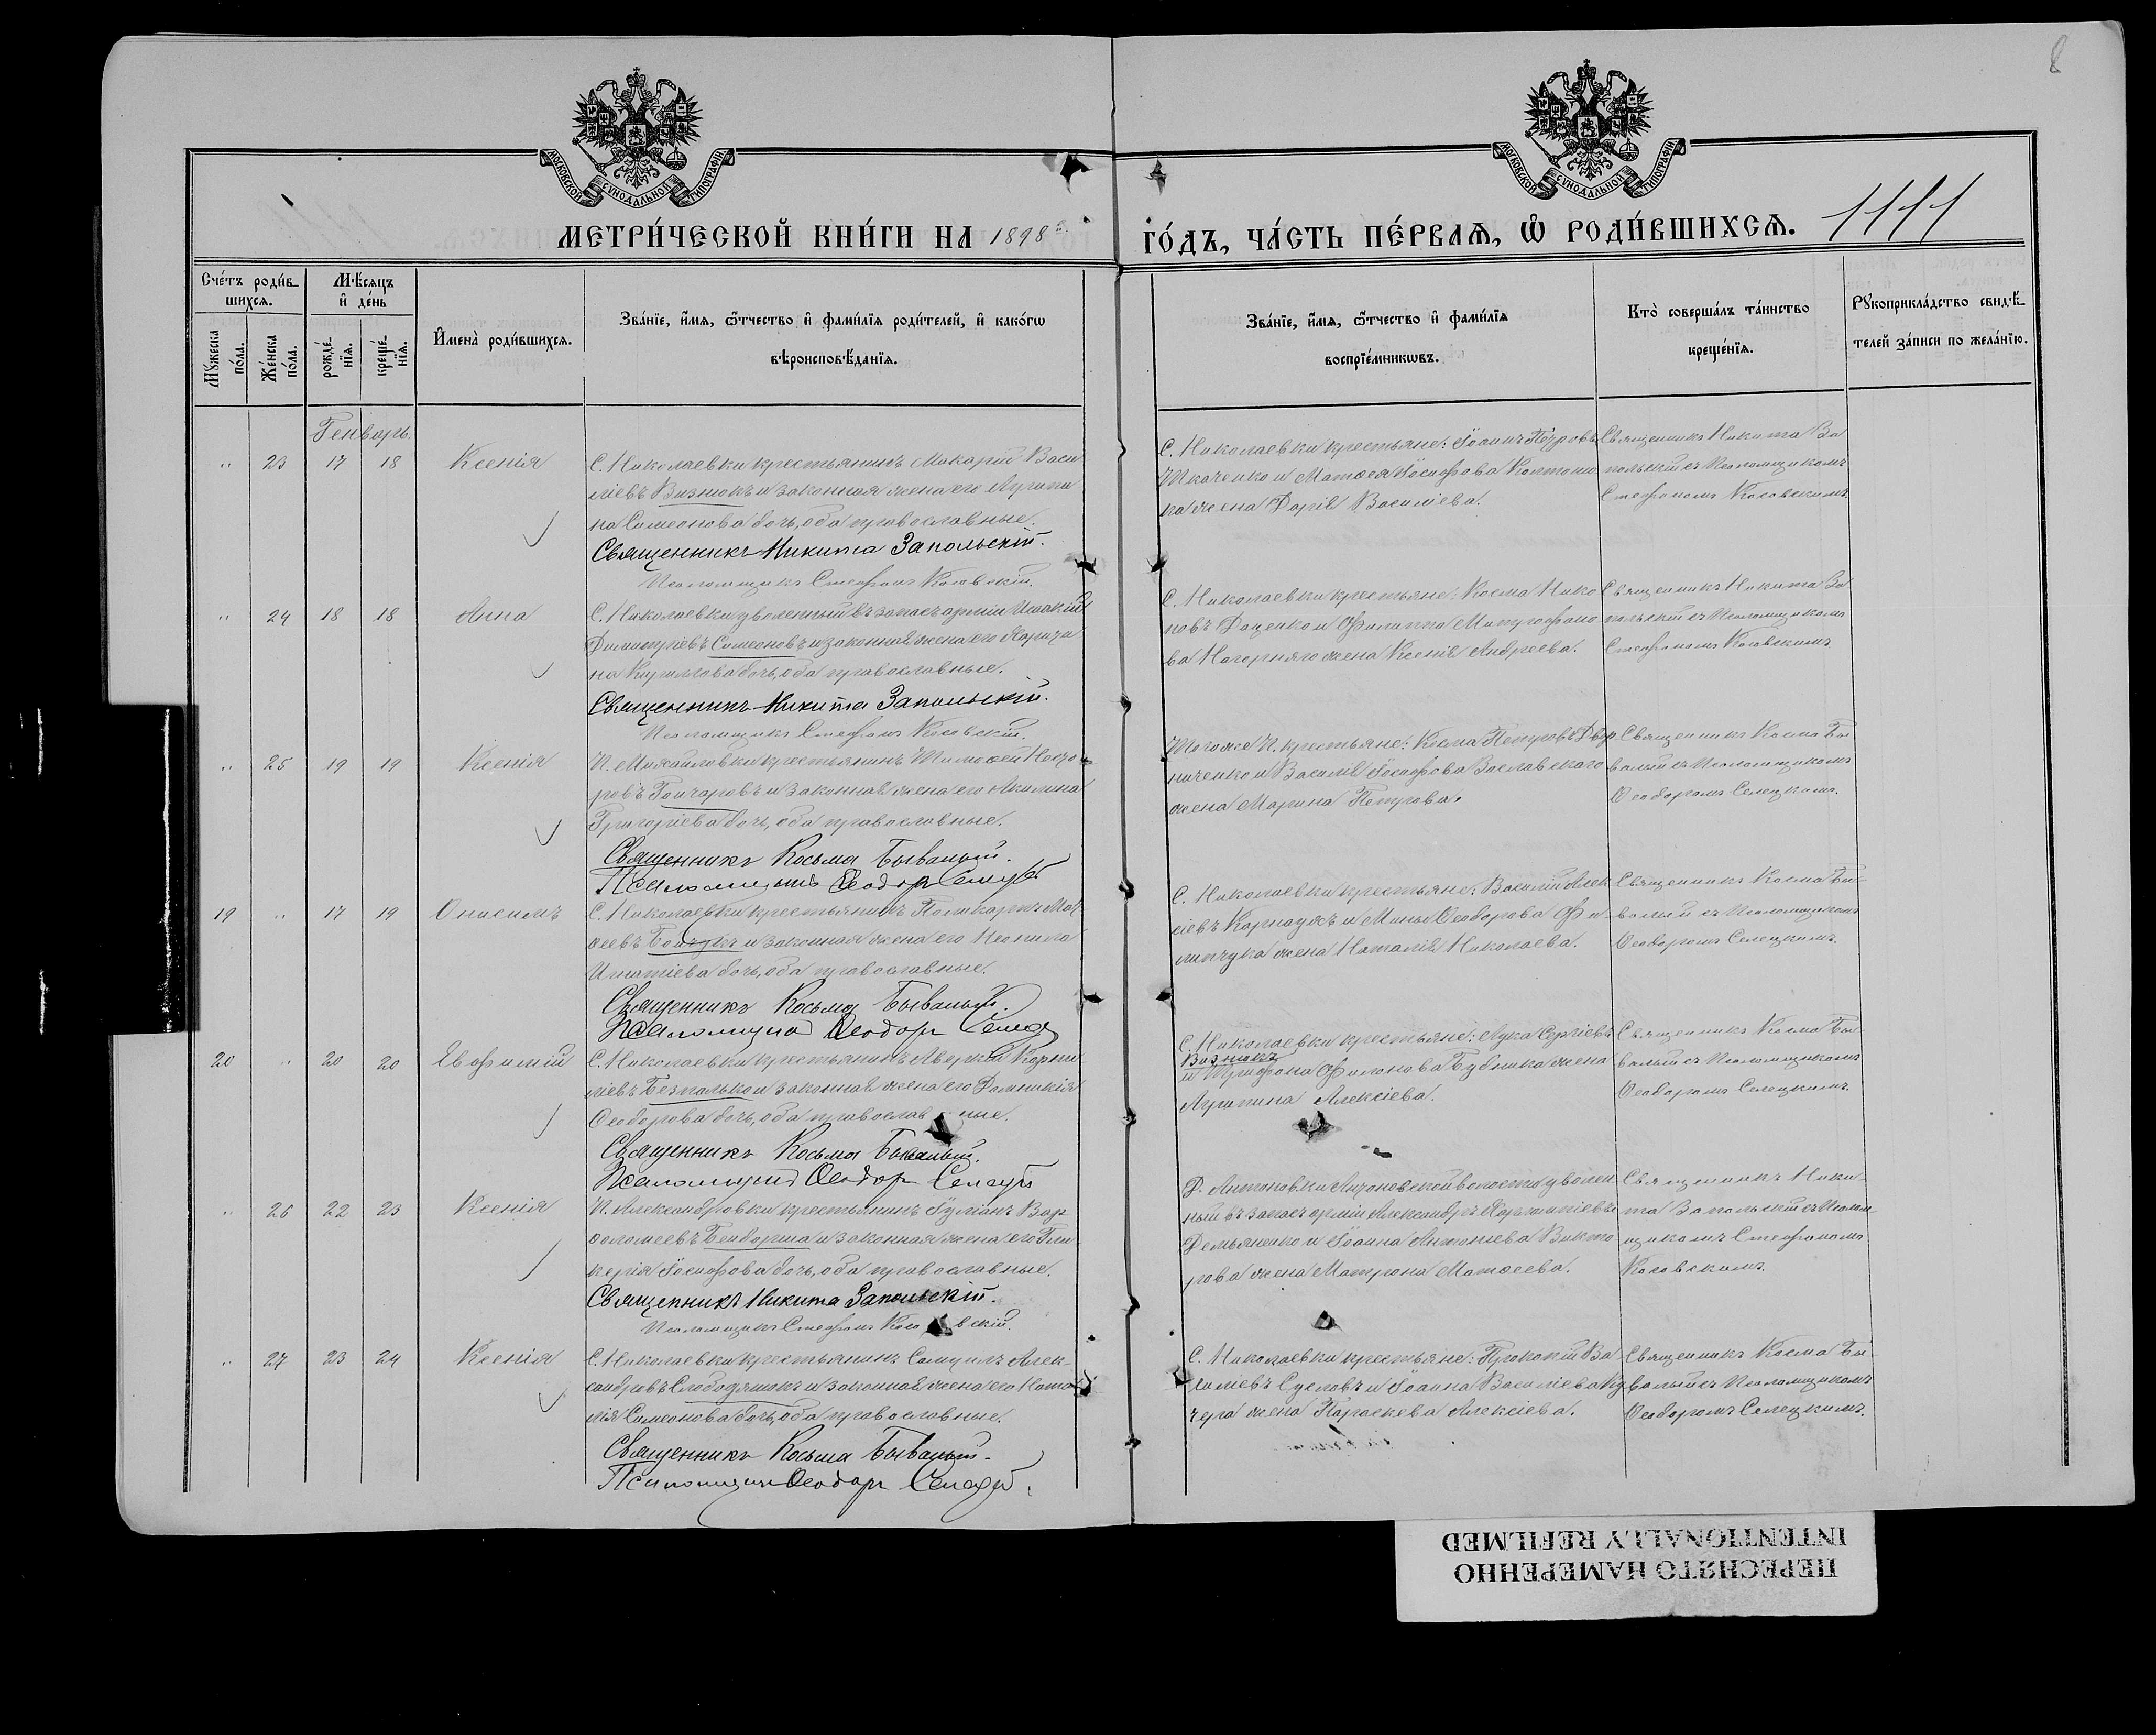 8
МОСКОВСКОЙ СѴНОДАЛЬНОЙ ТИПОГРАФІИ
МОСКОВСКОЙ СѴНОДАЛЬНОЙ ТИПОГРАФІИ
МЕТРИ́ЧЕСКОЙ КНИ́ГИ НА 1898
ГО́ДЪ, ЧА́СТЬ ПЕ́РВАѦ, Ѽ РОДИ́ВШИХСѦ.
Сче́тъ роди́в-
шихсѧ.
Мꙋ́жеска по́ла.
Же́нска по́ла.
Мѣ́сѧцъ
и҆ де́нь
рожде́нїѧ.
креще́нїѧ.
И҆мена̀ роди́вшихсѧ.
Зва́нїе, и҆́мѧ, ѻ҆́тчество и҆ фами́лїѧ роди́телей, и҆ како́гѡ
вѣроисповѣ́данїѧ.
Зва́нїе, и҆́мѧ, ѻ҆́тчество и҆ фами́лїѧ
воспрїе́мникѡвъ.
Кто̀ соверша́лъ та́инство
креще́нїѧ.
Рꙋкоприкла́дство свидѣ́-
телей за́писи по жела́нїю.
Генварь.
" 23 17 18 Ксенія
С. Николаевки крестьянинъ Макарій Васи
ліевъ Визнюкъ и законная жена его Агрипи
на Симеонова дочь, оба православные.
Священникъ Никита Запольскій.
Псаломщикъ Стефанъ Косовскій.
С. Николаевки крестьяне: Іоаннъ Петровъ
Ткаченко и Матѳея Іосифова
жена Дарія Василіева.
Священникъ Никита За
польскій съ Псаломщикомъ
Стефаномъ Косовскимъ.
" 24 18 18 Анна
С. Николаевки уволенный въ запасъ арміи
Димитріевъ Симеоновъ и законная жена его Хари́ти
на Кириллова дочь, оба православные.
Священникъ Никита Запольскій.
Псаломщикъ Стефанъ Косовскій.
С. Николаевки крестьяне: Косма Нико
новъ Даценко и Филиппа Митрофано
ва Нагорняго жена Ксенія Андреева.
Священникъ Никита За
польскій съ Псаломщикомъ
Стефаномъ Косовскимъ.
" 25 19 19 Ксенія
П. Михайловки крестьянинъ Тимоѳей
ровъ Гончаровъ и законная жена его Акилина
Григоріева дочь, оба православные.
Священникъ Косьма Бывалый.
Псаломщикъ Ѳеодоръ Селецкій
Того же П. крестьяне: Косма Петровъ Двор
ниченко и Василія Іосифова Заславскаго
жена Марина Петрова.
Священникъ Косма Бы
валый съ Псаломщикомъ
Ѳеодоромъ Селецкимъ.
19 " 17 19 Онисимъ
С. Николаевки крестьянинъ Поликарпъ Мат
ѳеевъ и законная жена его Неонила
Игнатіева дочь, оба православные.
Священникъ Косьма Бывалый.
Псаломщикъ Ѳеодоръ Селец
С. Николаевки крестьяне: Василій Алек
сіевъ Карнаухъ и Мины Ѳеодорова Фи
липчука жена Наталія Николаева.
Священникъ Косма Бы-
валый съ Псаломщикомъ
Ѳеодоромъ Селецкимъ.
20 " 20 20 Евфимій
С. Николаевки крестьянинъ Аверкій Корни
ліевъ Безпалько и законная жена его Домникія
Ѳеодорова дочь, оба православные.
Священникъ Косьма Бывалый.
Псаломщикъ Ѳеодоръ Селецкій
С. Николаевки крестьяне: Лука Сергіевъ
Визнюкъ
и Трифона Филонова Будника жена
Агрипина Алексіева.
Священникъ Косма Бы-
валый съ Псаломщикомъ
Ѳеодоромъ Селецкимъ.
" 26 22 23 Ксенія
П. Александровки крестьянинъ Іуліанъ Вар-
ѳоломеевъ и законная жена его Гли
керія Іосифова дочь, оба православные.
Священникъ Никита Запольскій.
Псаломщикъ Стефанъ Косовскій.
Д. Антоновки волости уволен
ный въ запасъ арміи Александръ Харлампіевъ
Демьяненко и Іоанна Антоніева Викто
рова жена Матрона Матѳеева.
Священникъ Ники-
та Запольскій съ Псалом-
щикомъ Стефаномъ
Косовскимъ.
" 27 23 24 Ксенія
С. Николаевки крестьянинъ Самуилъ Алек-
сандровъ Слободянюкъ и законная жена его Ната
лія Симеонова дочь, оба православные.
Священникъ Косьма Бывалый.
Псаломщикъ Ѳеодоръ Селецкій.
С. Николаевки крестьяне: Прокопій Ва
силіевъ Сусловъ и Іоанна Василіева Ку
чера жена Параскева Алексіева.
Священникъ Косма Бы-
валый съ Псаломщикомъ
Ѳеодоромъ Селецкимъ.
ПЕРЕСНЯТО НАМЕРЕННО
INTENTIONALLY REFILMED